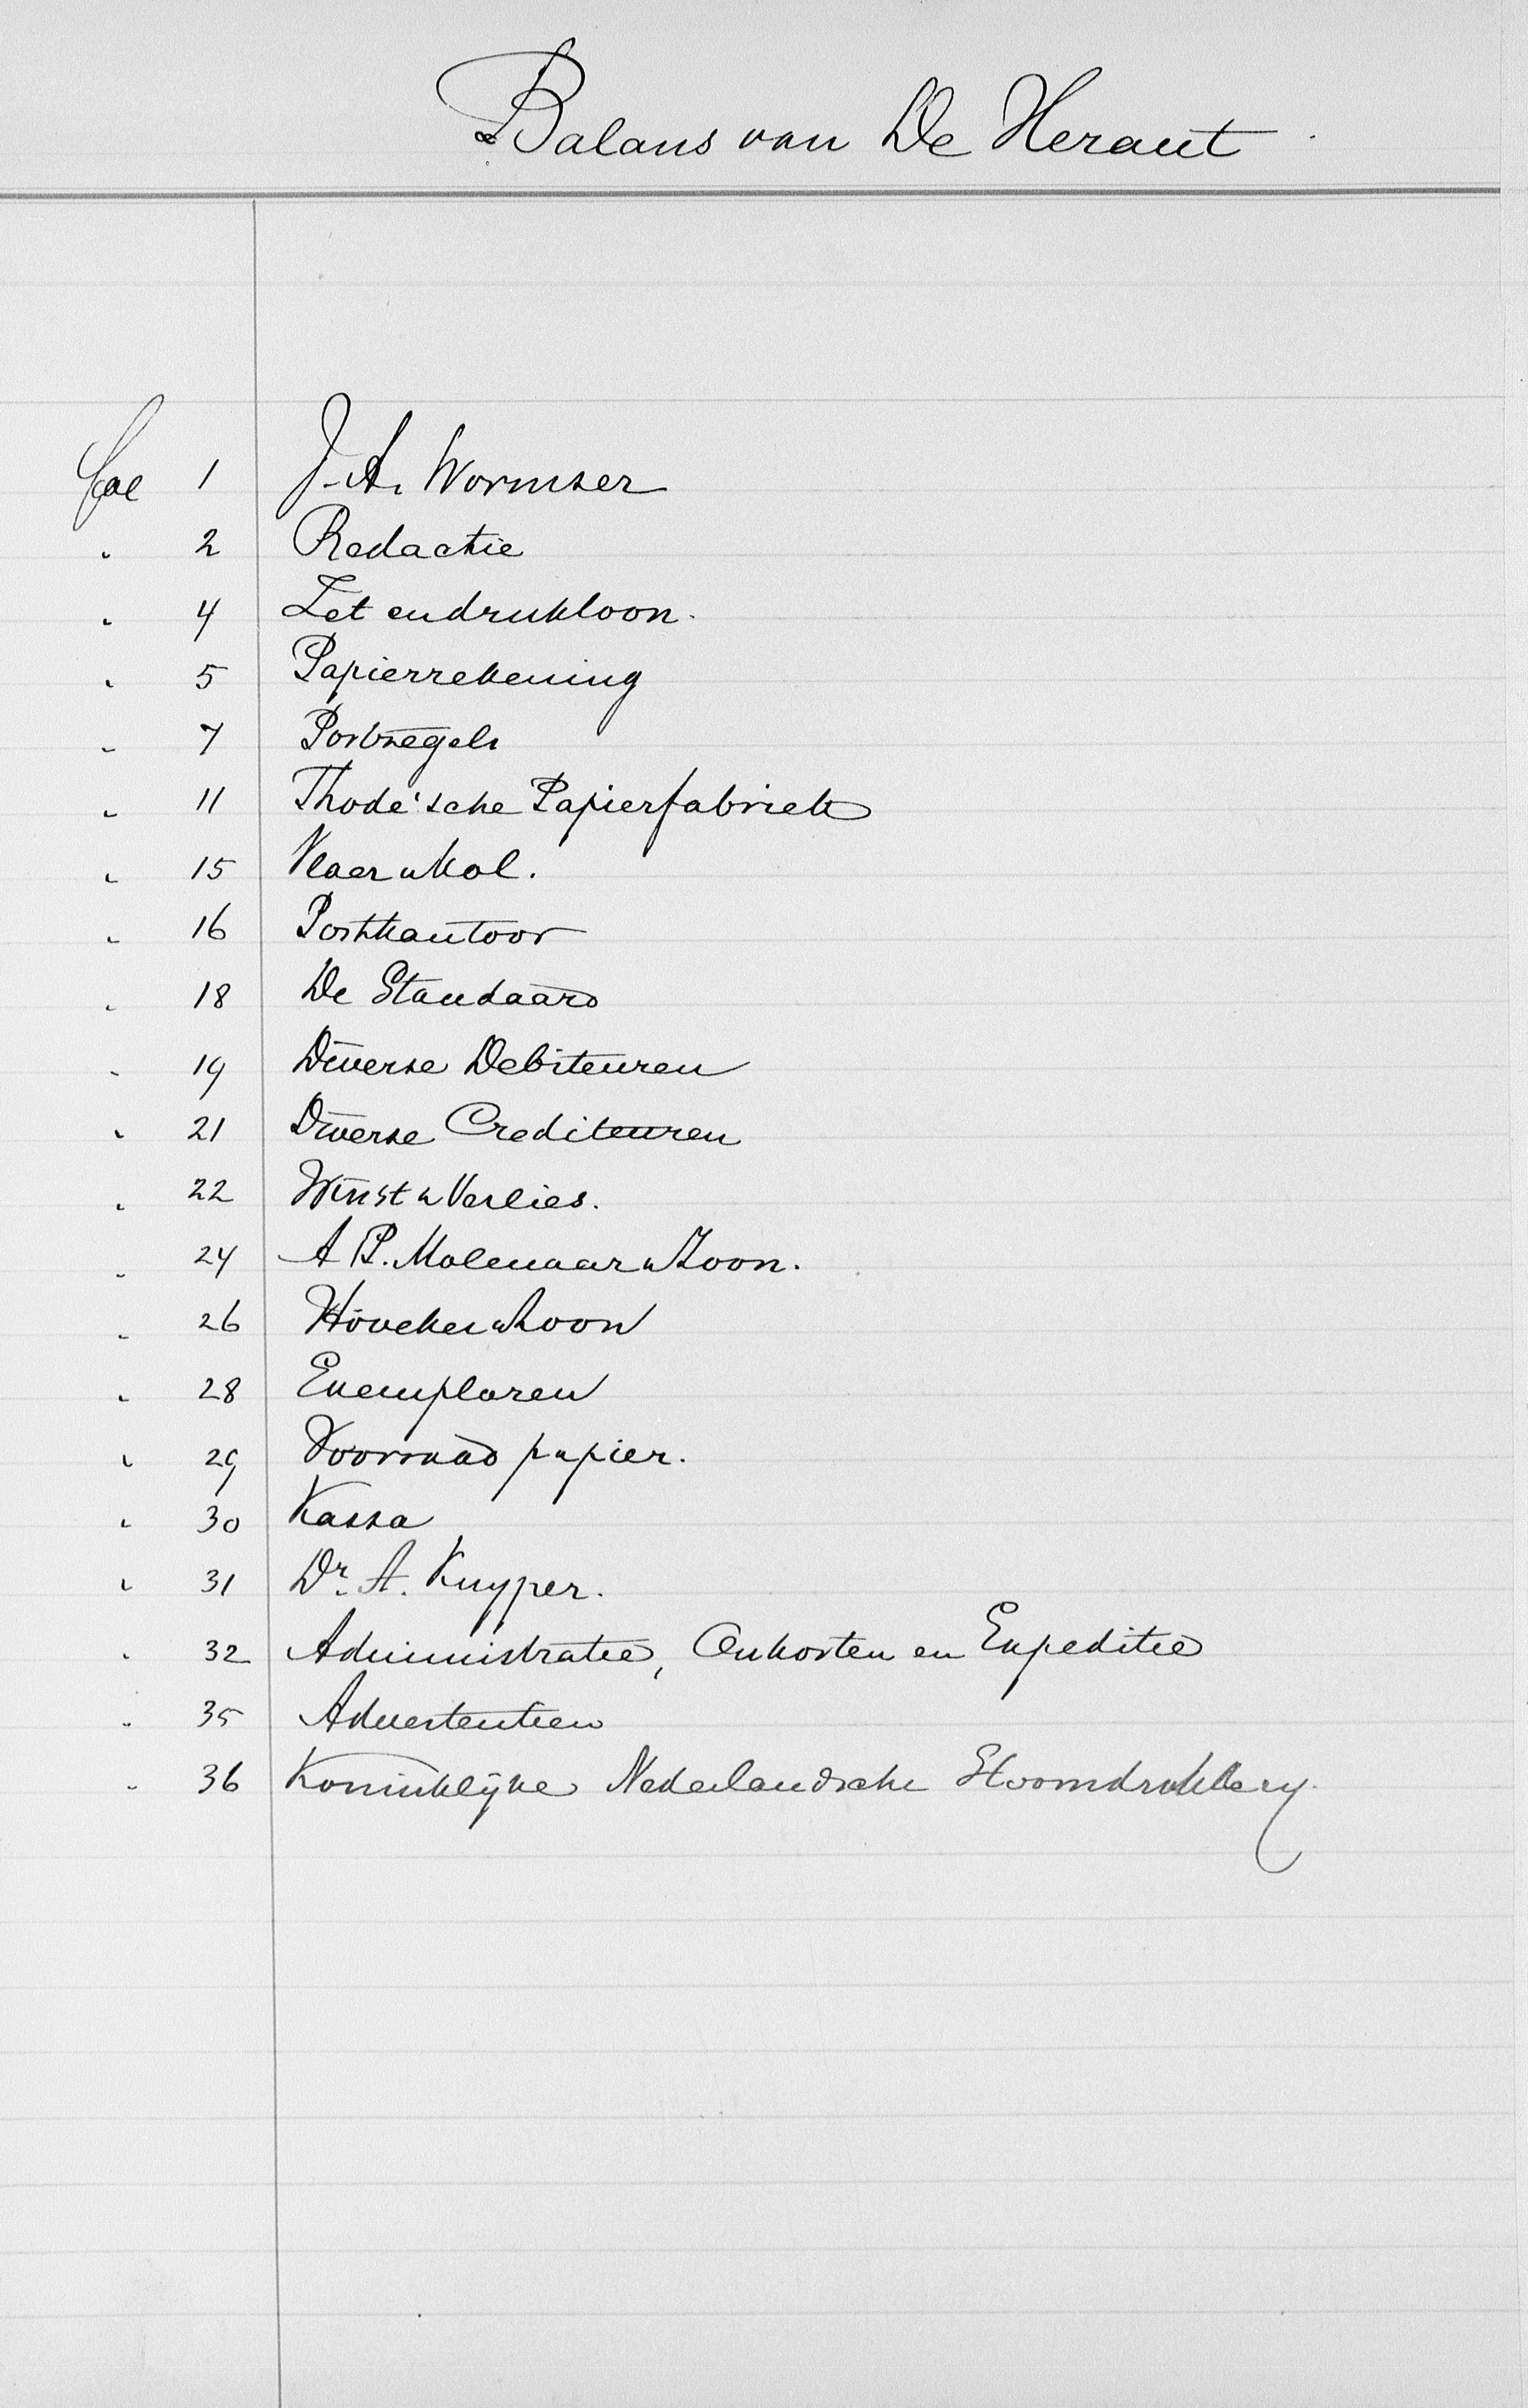 Balans van De Heraut
fol 1 J. A. Wormser
" 2 Redactie
" 4 Zet en drukloon.
" 5 Papierrekening
" 7 Postzegels
" 11 Thode'sche Papierfabriek
" 15 Vlaer & Kol.
" 16 Postkantoor
" 18 De Standaard
" 19 Diverse Debiteuren
" 21 Diverse Crediteuren
" 22 Winst & Verlies.
" 24 A P. Molenaar & Zoon.
" 26 Höveker & Zoon
" 28 Exemplaren
" 29 Voorraad papier.
" 30 Kassa
" 31 Dr. A. Kuyper.
" 32 Administratie, Onkosten en Expeditie
" 35 Advertentien
" 36 Koninklijke Nederlandsche Stoomdrukkery.